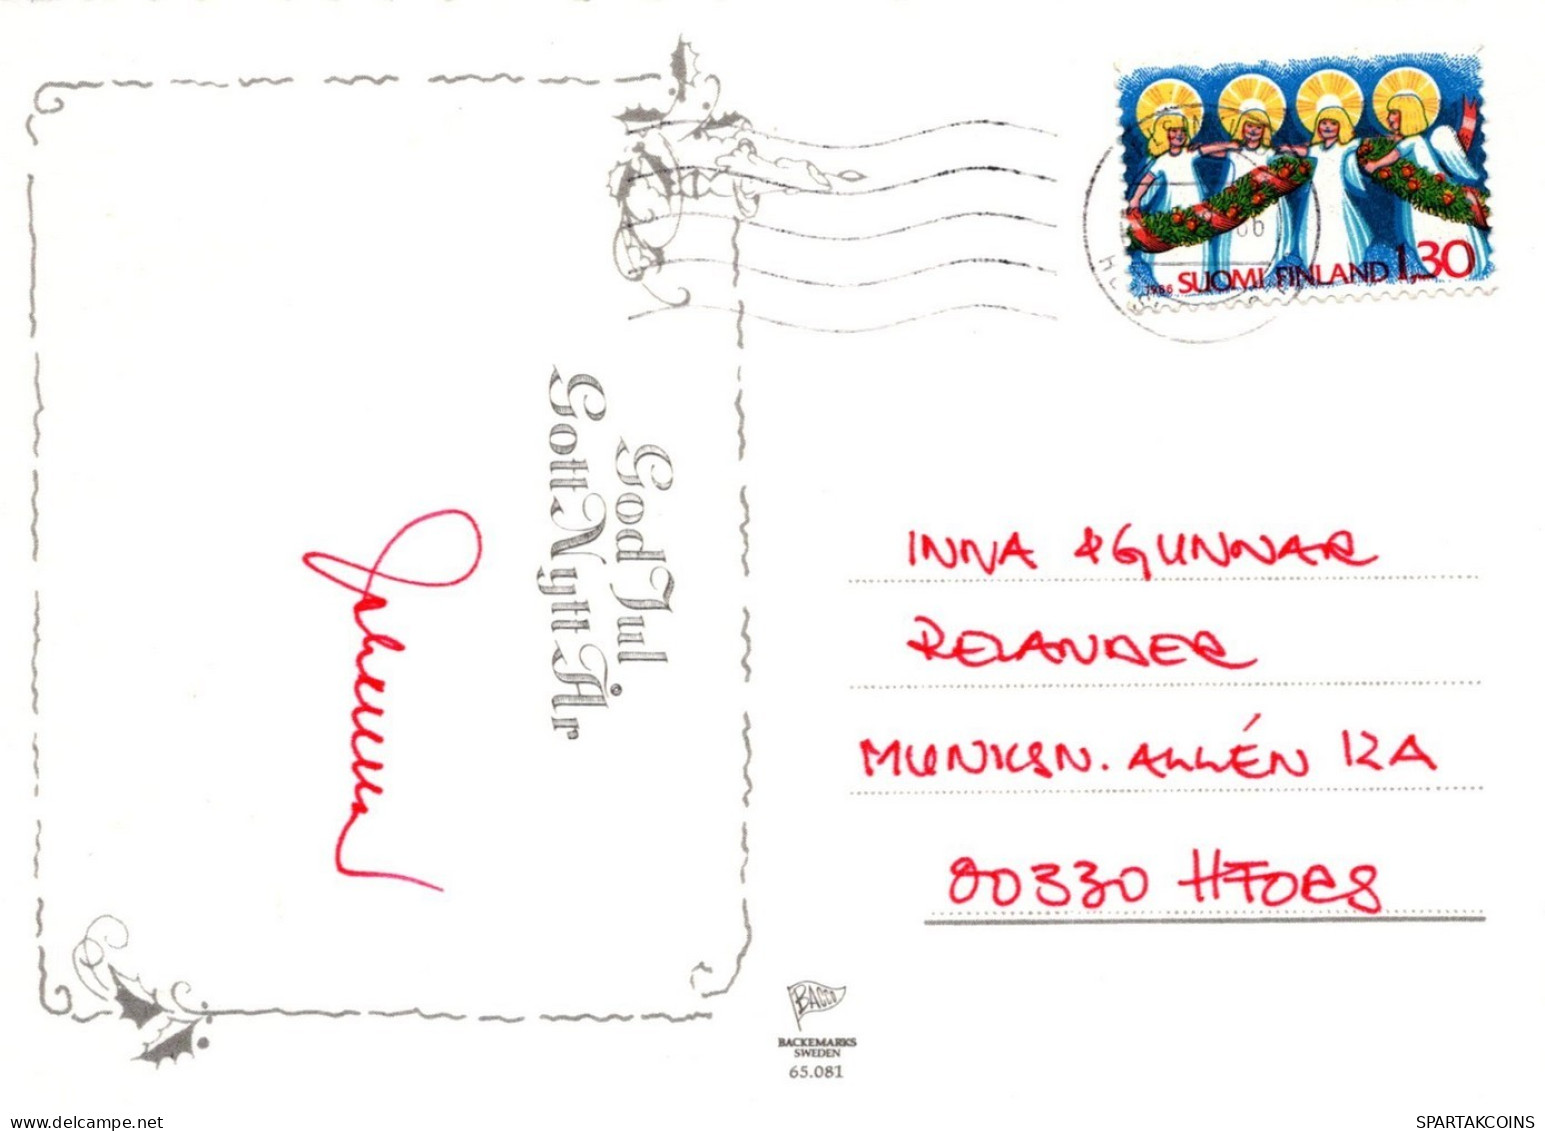 God Jul
Gott Nytt År
1986 SUOMI FINLAND 1,30
INNA & GUNNAR
RELANDER
MUNKSN. ALLÉN 12A
00330 HFORS
BACCO
BACKEMARKS
SWEDEN
65.081
delcampe.net
SPARTAKCOINS